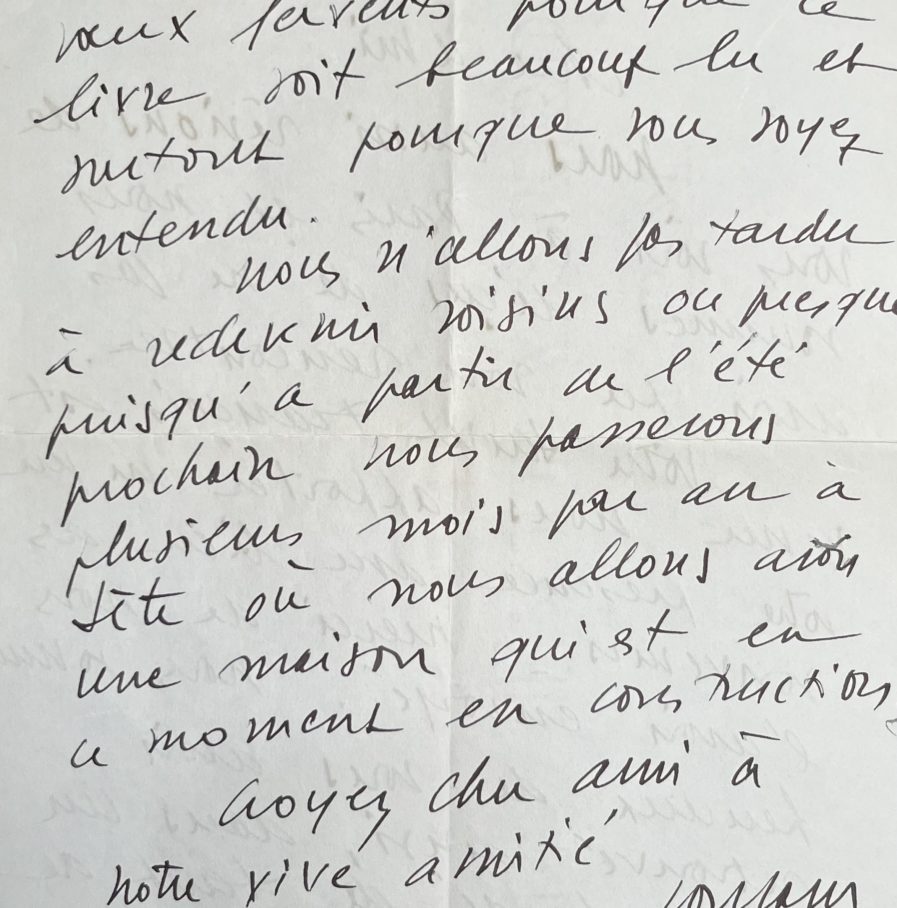 vœux fervents pour que ce
livre soit beaucoup lu et
surtout pourque vous soyez
entendu.
nous n'allons pas tarder
à redevenir voisins ou presque
puisqu'a partir de l'été
prochain nous passerons
plusieurs mois par an à
Sète où nous allons avoir
une maison qui est en
ce moment en construction,
croyez cher ami à
notre vive amitié